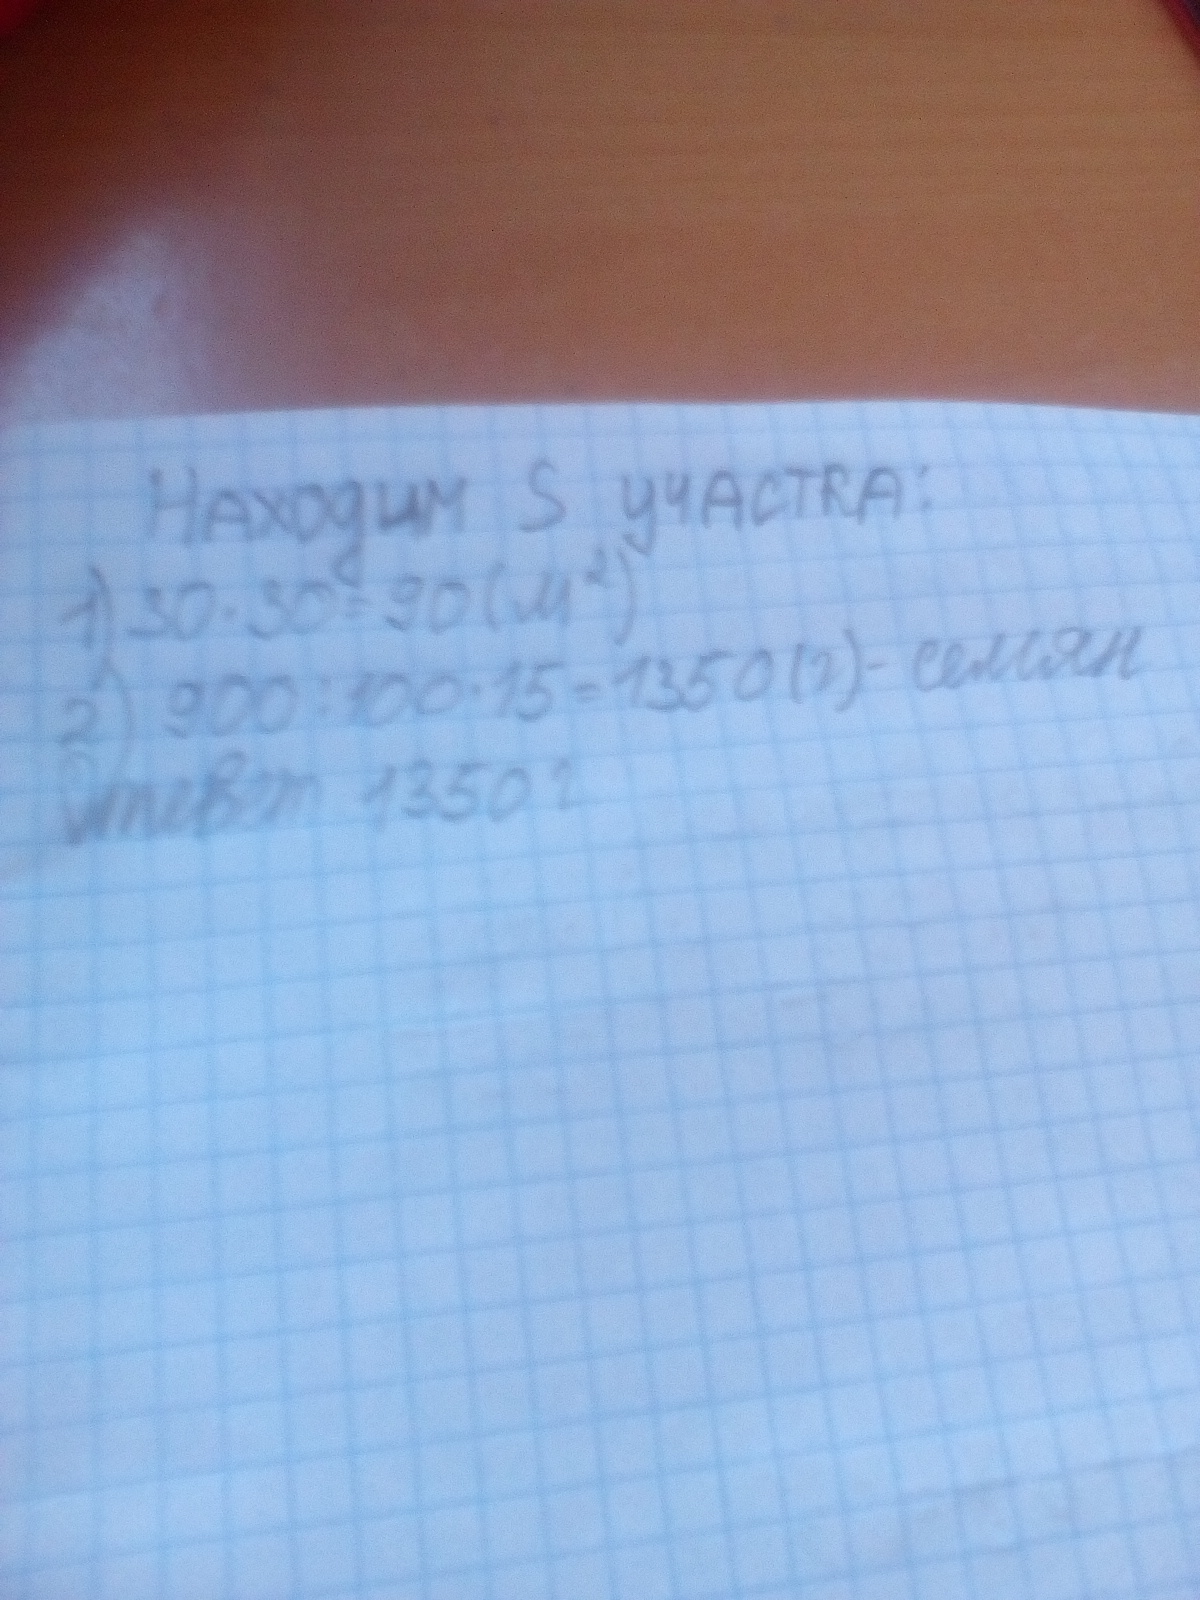 Находим S участка:
1) 30·30=90(м²)
2) 900:100·15=1350(г)- семян
Ответ 1350г